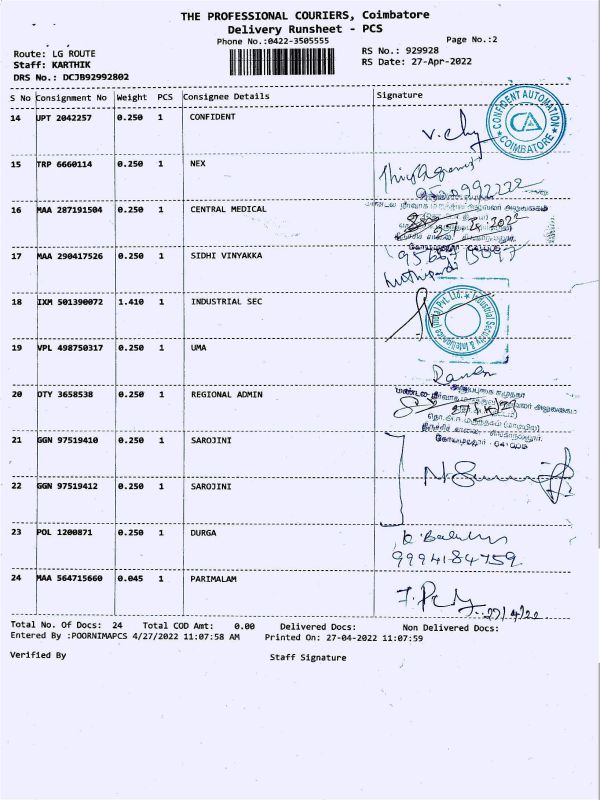 THE PROFESSIONAL COURIERS, Coimbatore
Delivery Runsheet - PCS
Phone No.:0422-3505555
Page No.:2
Route: LG ROUTE
RS No.: 929928
Staff: KARTHIK
RS Date: 27-Apr-2022
DRS No.: DCJB92992802
S No Consignment No Weight PCS Consignee Details Signature
14 UPT 2042257 0.250 1 CONFIDENT
CONFIDENT AUTOMATION
CA
COIMBATORE
15 TRP 6660114 0.250 1 NEX
16 MAA 287191504 0.250 1 CENTRAL MEDICAL
17 MAA 290417526 0.250 1 SIDHI VINYAKKA
18 IXM 501390072 1.410 1 INDUSTRIAL SEC
Industrial Security & Intelligence (India) Pvt. Ltd.
19 VPL 498750317 0.250 1 UMA
20 OTY 3658538 0.250 1 REGIONAL ADMIN
21 GGN 97519410 0.250 1 SAROJINI
22 GGN 97519412 0.250 1 SAROJINI
23 POL 1200871 0.250 1 DURGA
9994184759
24 MAA 564715660 0.045 1 PARIMALAM
27/4/22
Total No. Of Docs: 24 Total COD Amt: 0.00 Delivered Docs: Non Delivered Docs:
Entered By :POORNIMAPCS 4/27/2022 11:07:58 AM Printed On: 27-04-2022 11:07:59
Verified By Staff Signature